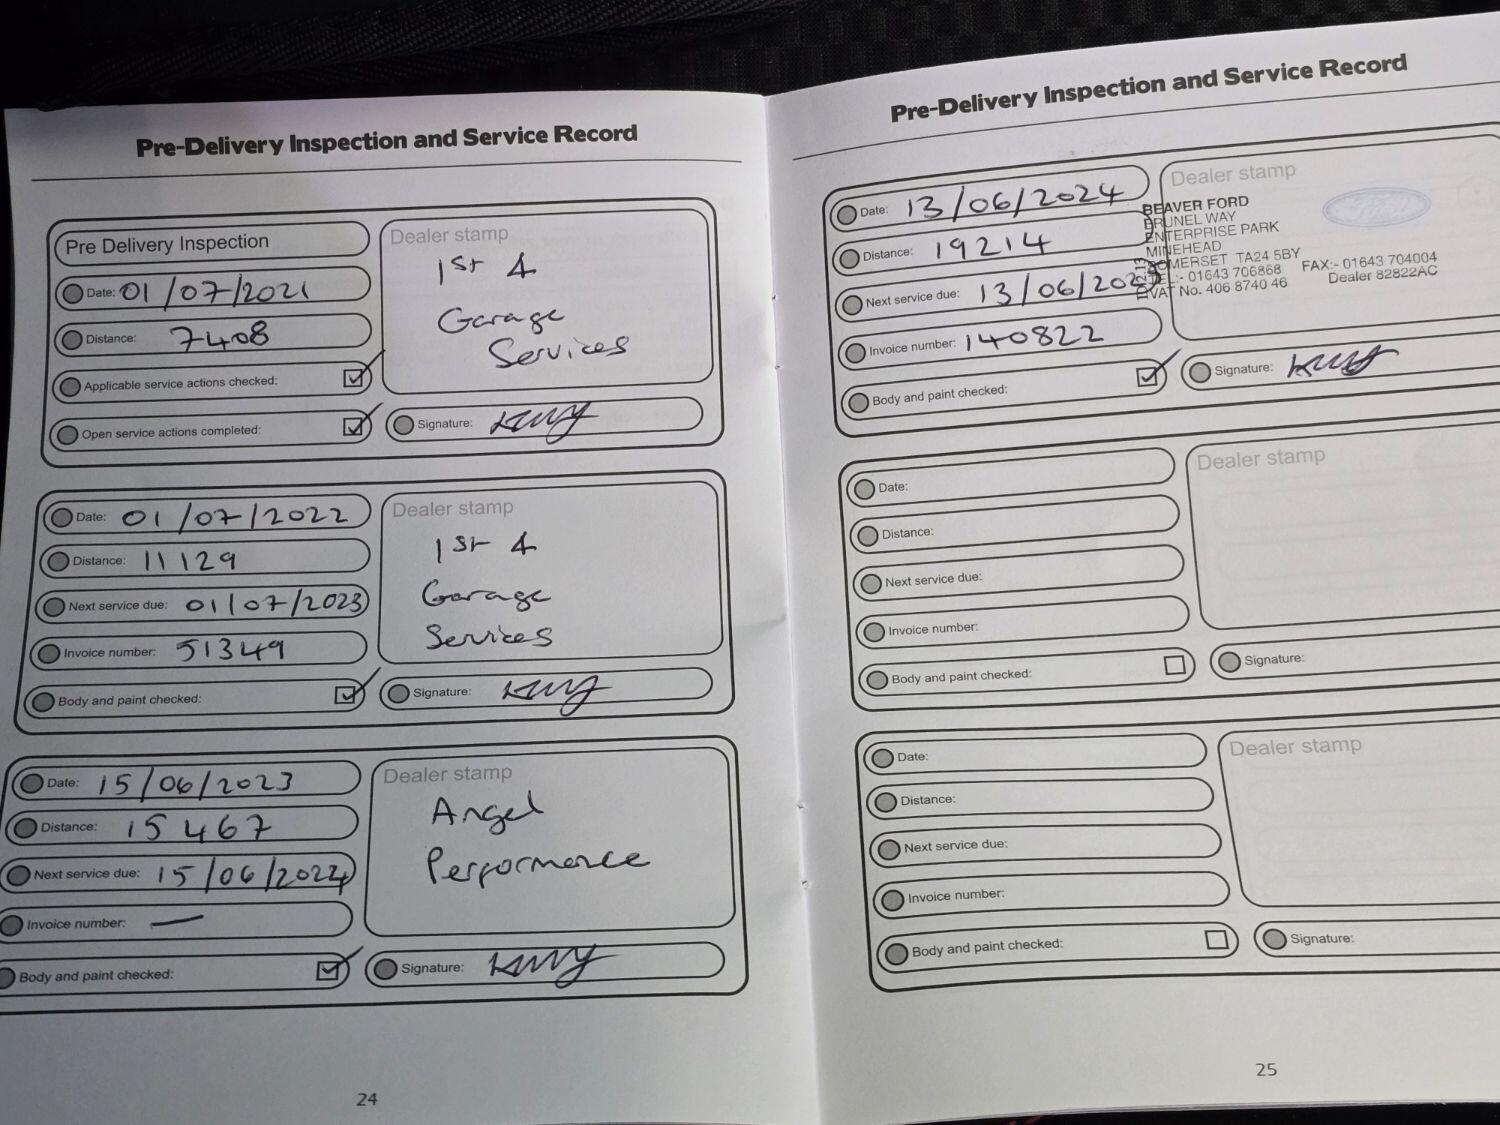 Pre-Delivery Inspection and Service Record
Pre Delivery Inspection
Date: 01/07/2021
Distance: 7408
Applicable service actions checked:
Open service actions completed:
Dealer stamp
1st 4
Garage
Services
Signature:
Date: 01/07/2022
Distance: 11129
Next service due: 01/07/2023
Invoice number: 51349
Body and paint checked:
Dealer stamp
1st 4
Garage
Services
Signature:
Date: 15/06/2023
Distance: 15467
Next service due: 15/06/2024
Invoice number: —
Body and paint checked:
Dealer stamp
Angel
Performance
Signature:
24
Pre-Delivery Inspection and Service Record
Date: 13/06/2024
Distance: 19214
Next service due: 13/06/2025
Invoice number: 140822
Body and paint checked:
Dealer stamp
Ford
BEAVER FORD
BRUNEL WAY
ENTERPRISE PARK
MINEHEAD
SOMERSET TA24 5BY
TEL:- 01643 706868 FAX:- 01643 704004
VAT No. 406 8740 46 Dealer 82822AC
Signature:
Date:
Distance:
Next service due:
Invoice number:
Body and paint checked:
Dealer stamp
Signature:
Date:
Distance:
Next service due:
Invoice number:
Body and paint checked:
Dealer stamp
Signature:
25